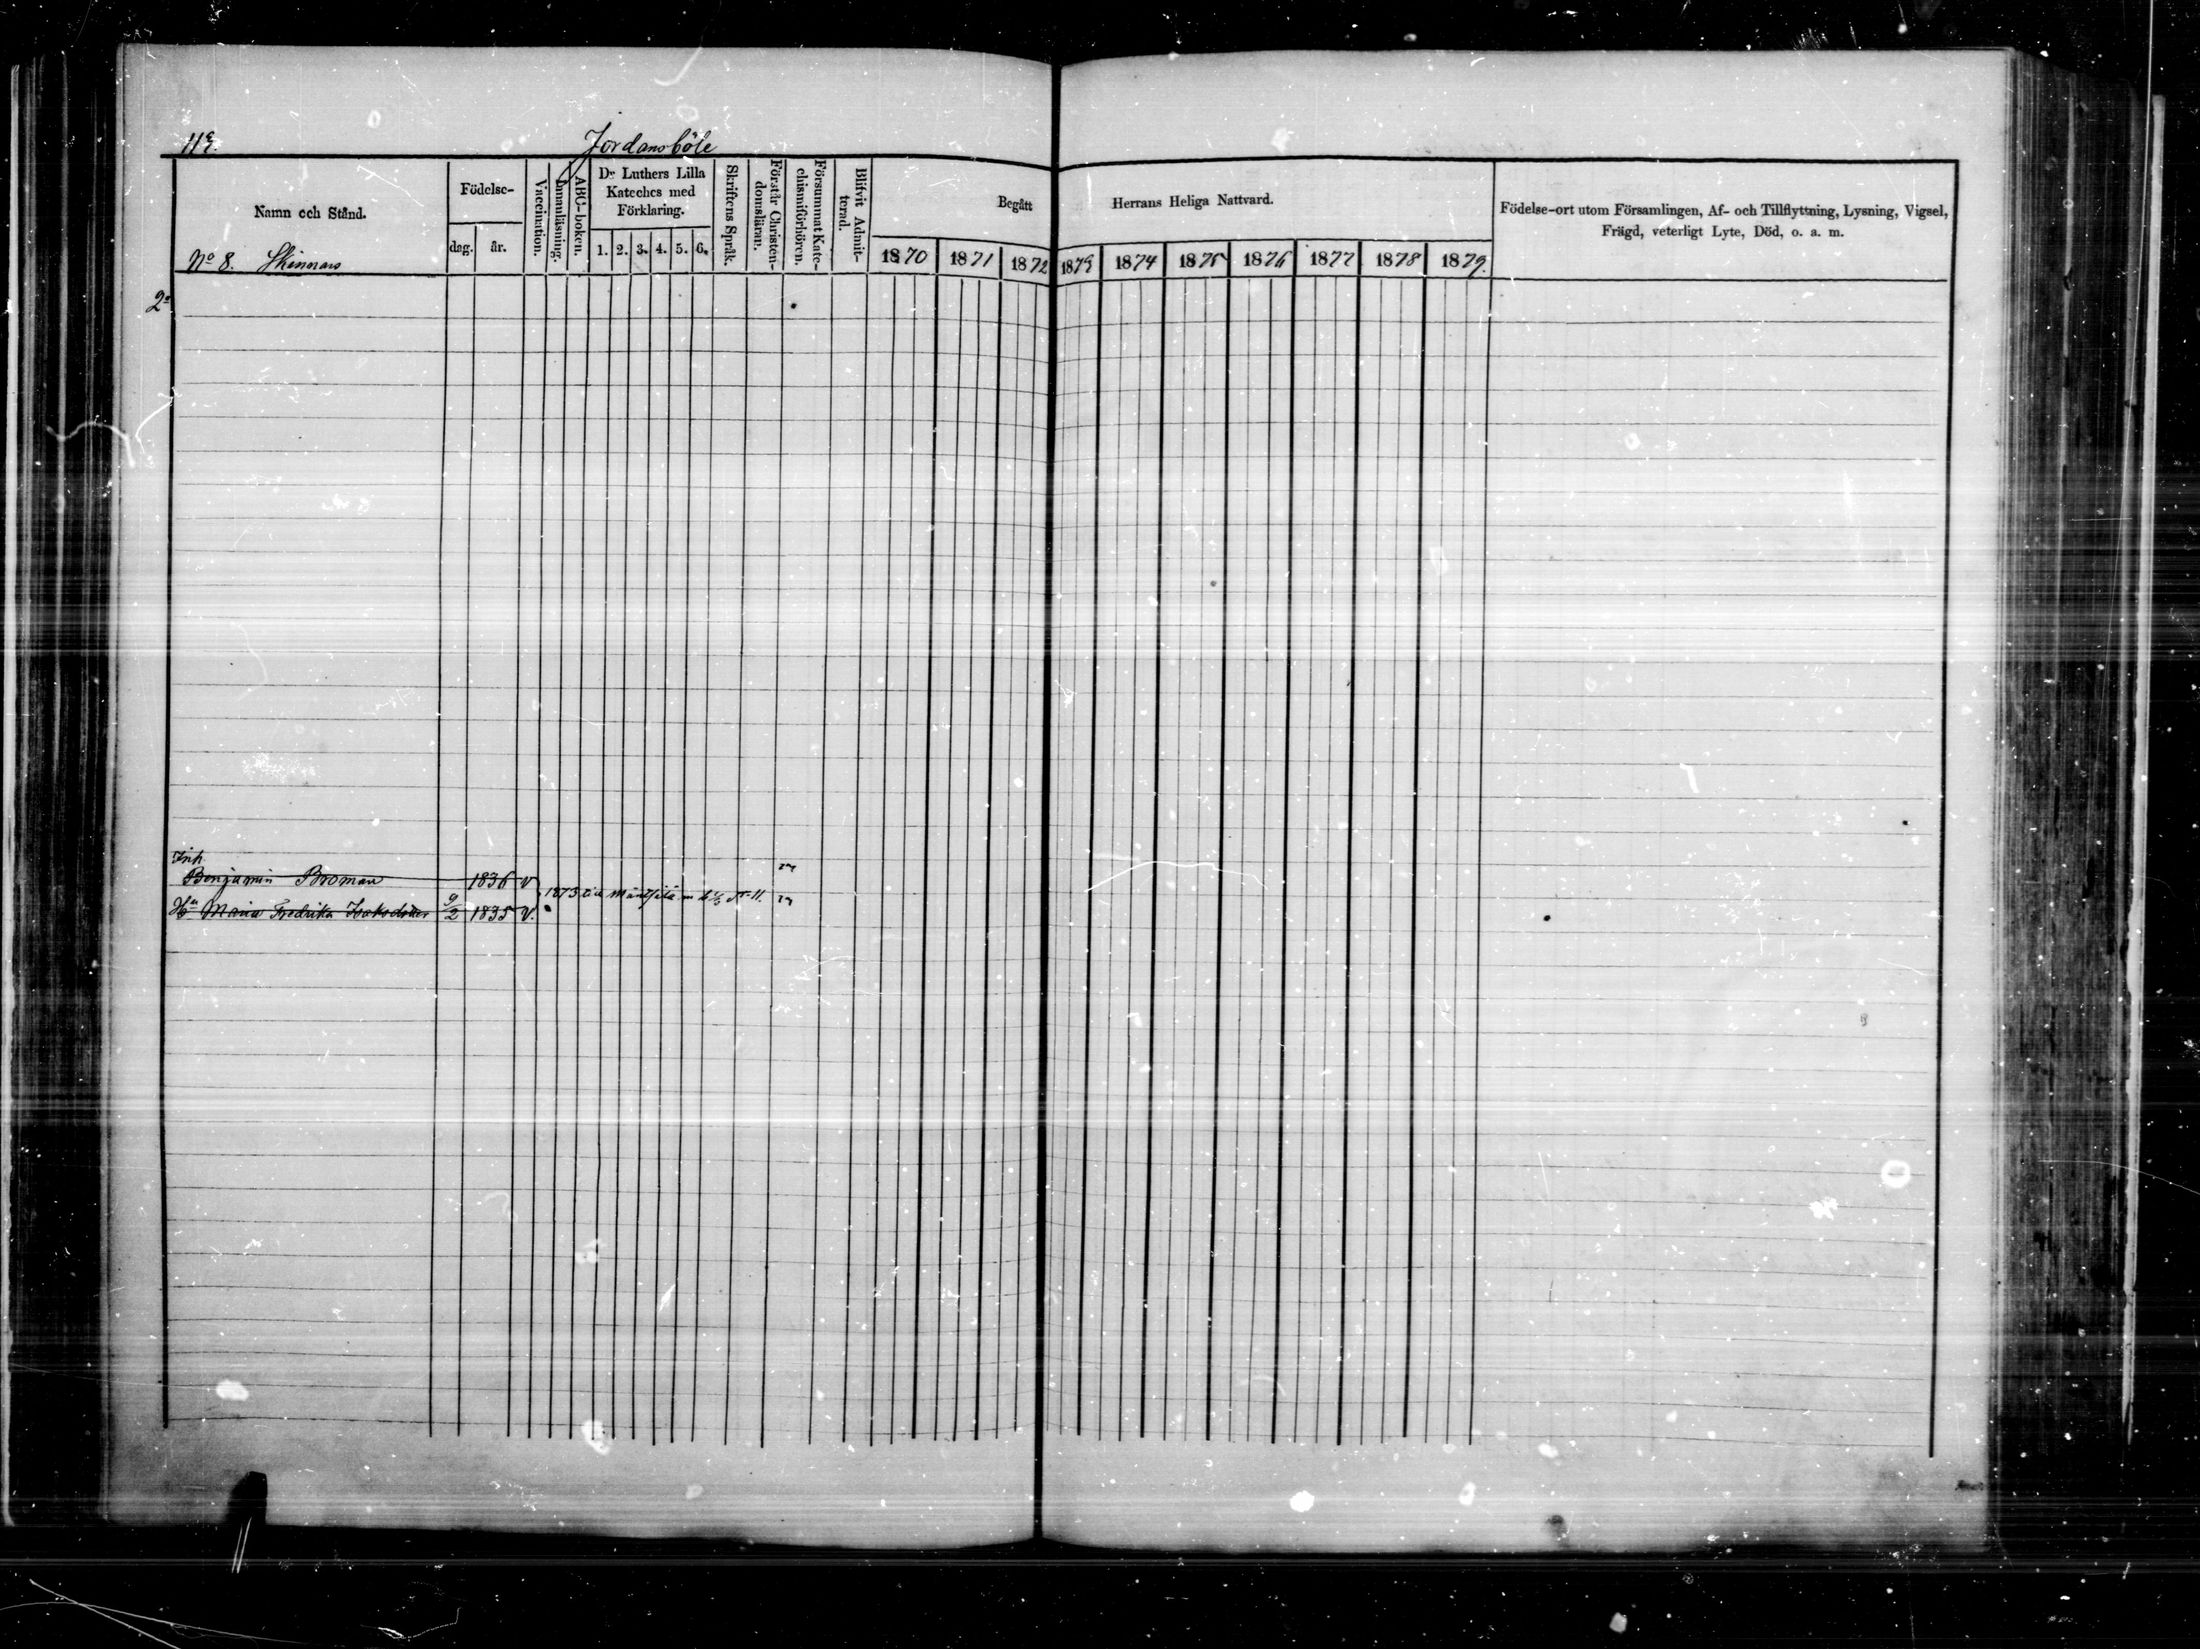 119.
Jordansböle
Namn och Stånd.
Födelse-
dag. år.
Vaccination.
Innanläsning.
ABC-boken.
Dr Luthers Lilla
Kateches med
Förklaring.
1. 2. 3. 4. 5. 6.
Skriftens Språk.
Förstår Christen-
domsläran.
Försummat Kate-
chismiförhören.
Blifvit Admit-
terad.
Begått Herrans Heliga Nattvard.
1870 1871 1872 1873 1874 1875 1876 1877 1878 1879.
Födelse-ort utom Församlingen, Af- och Tillflyttning, Lysning, Vigsel,
Frägd, veterligt Lyte, Död, o. a. m.
No 8. Skinnars
2
Inh.
Benjamin Broman 1836 v
1873 till Mäntsälä
Hu Maria Fredrika Isaksdotter 9/2 1835 v.